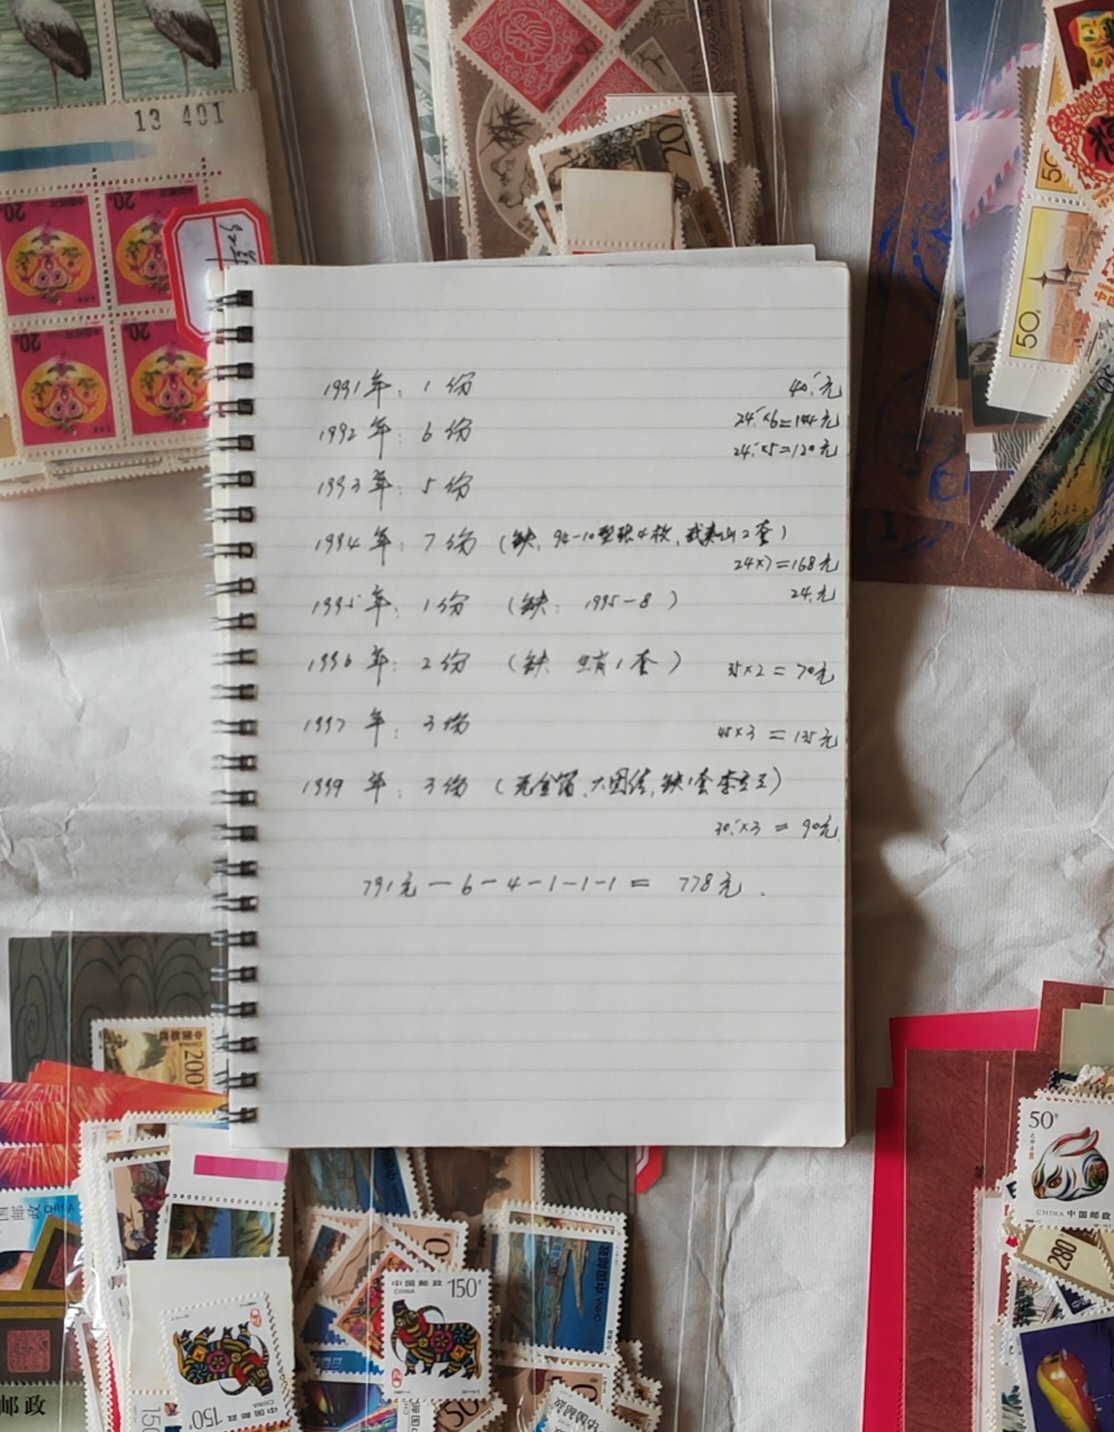 13 401
20分
20
50分
50分
1991年：1份 40元
1992年：6份 24×6=144元
24×5=120元
1993年：5份
1994年：7份（缺：94-10型张4枚，武夷山2套）
24×7=168元
1995年：1份（缺：1995-8） 24元
1996年：2份（缺 生肖1套） 35×2=70元
1997年：3份
45×3=135元
1999年：3份（无金箔、大团结，缺1套李立三）
30×3=90元
791元-6-4-1-1-1=778元.
200
50分
CHINA 中国邮政
280
中国邮政 CHINA 150分
CHINA 中国邮政
中国邮政 CHINA 150分
150
50
邮政